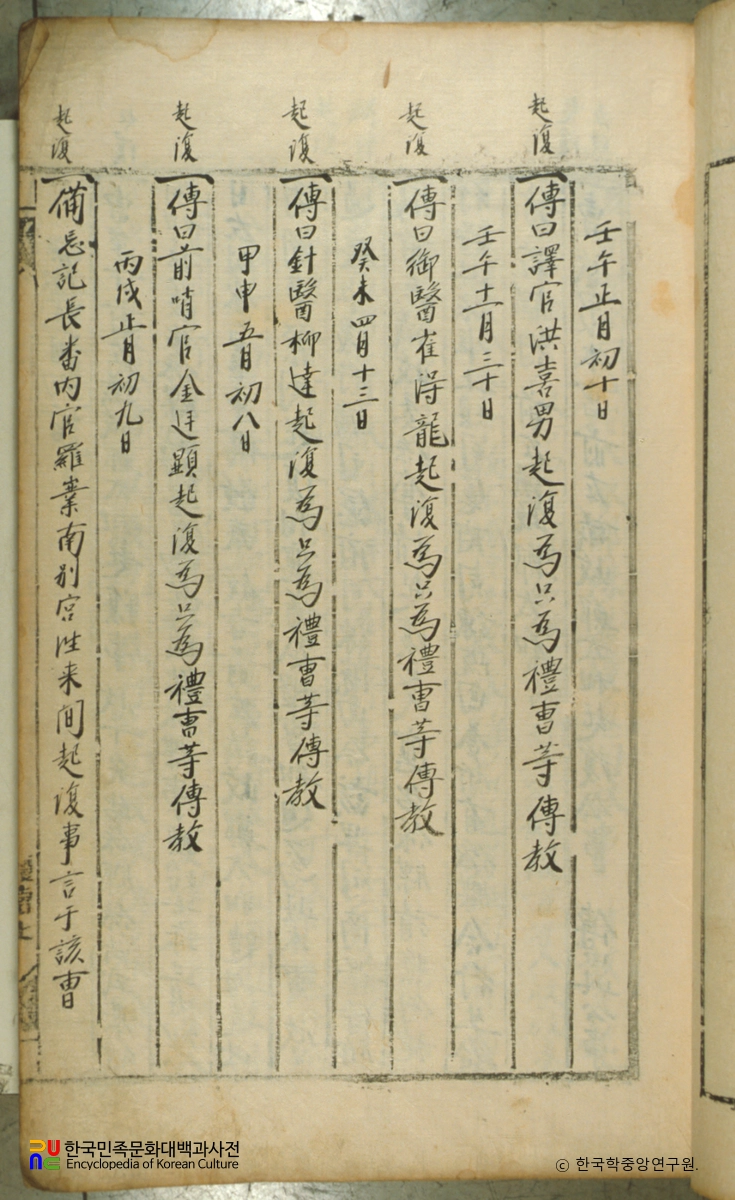 壬午正月初十日
起復
一傳曰譯官洪喜男起復爲只爲禮曹等傳教
壬午十一月三十日
起復
一傳曰御醫崔得龍起復爲只爲禮曹等傳教
癸未四月十三日
起復
一傳曰針醫柳達起復爲只爲禮曹等傳教
甲申五月初八日
起復
一傳曰前哨官金廷顯起復爲只爲禮曹等傳教
丙戌正月初九日
起復
一備忘記長番內官羅業南別宮往來間起復事言于該曹
한국민족문화대백과사전
Encyclopedia of Korean Culture
© 한국학중앙연구원.